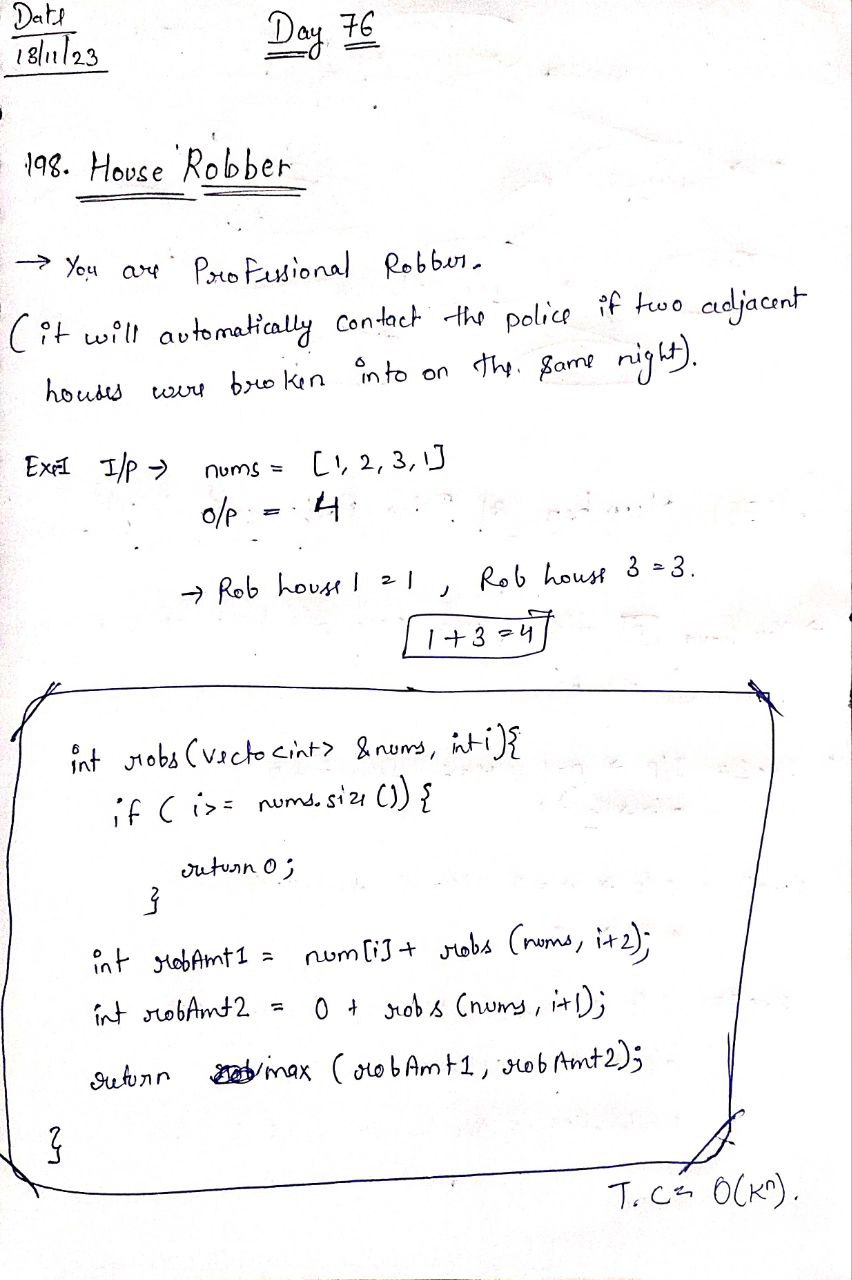 Date
18/11/23
Day 76
198. House Robber
→ You are Professional Robber.
(it will automatically contact the police if two adjacent
houses were broken into on the same night).
Ex:1 I/p → nums = [1, 2, 3, 1]
o/p = 4
→ Rob house 1 = 1, Rob house 3 = 3.
1 + 3 = 4
int robs (vecto<int> &nums, int i){
if ( i >= nums.size ()) {
return 0;
}
int robAmt1 = num[i] + robs (nums, i+2);
int robAmt2 = 0 + robs (nums, i+1);
return max ( robAmt1, robAmt2);
}
T.C = O(k^n).